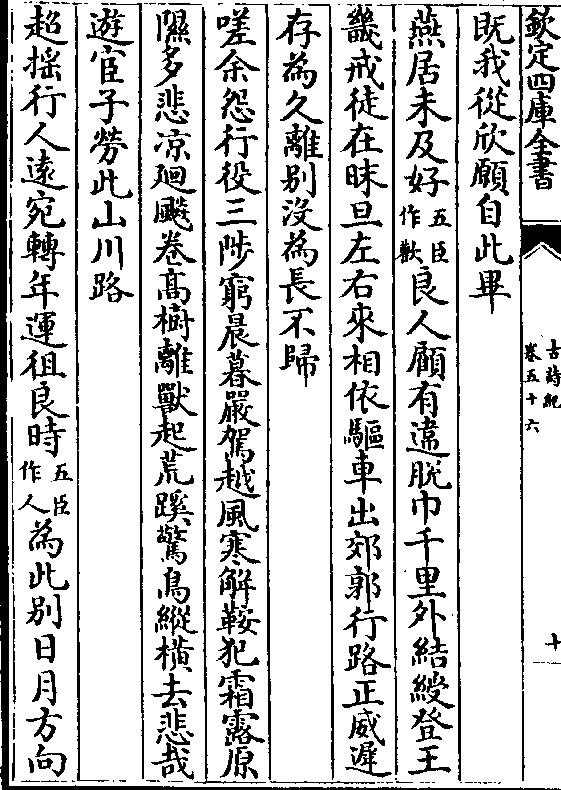 欽定四庫全書
古詩紀
卷五十六
十
既我從欣願自此畢
燕居未及好五臣作歡良人顧有違脫巾千里外結綬登王
畿戒徒在昧旦左右來相依驅車出郊郭行路正威遲
存為久離别沒為長不歸
嗟余怨行役三陟窮晨暮嚴駕越風寒解鞍犯霜露原
隰多悲凉廻飈卷髙樹離獸起荒蹊驚鳥縱橫去悲哉
遊宦子勞此山川路
超揺行人遠宛轉年運徂良時五臣作人為此别日月方向